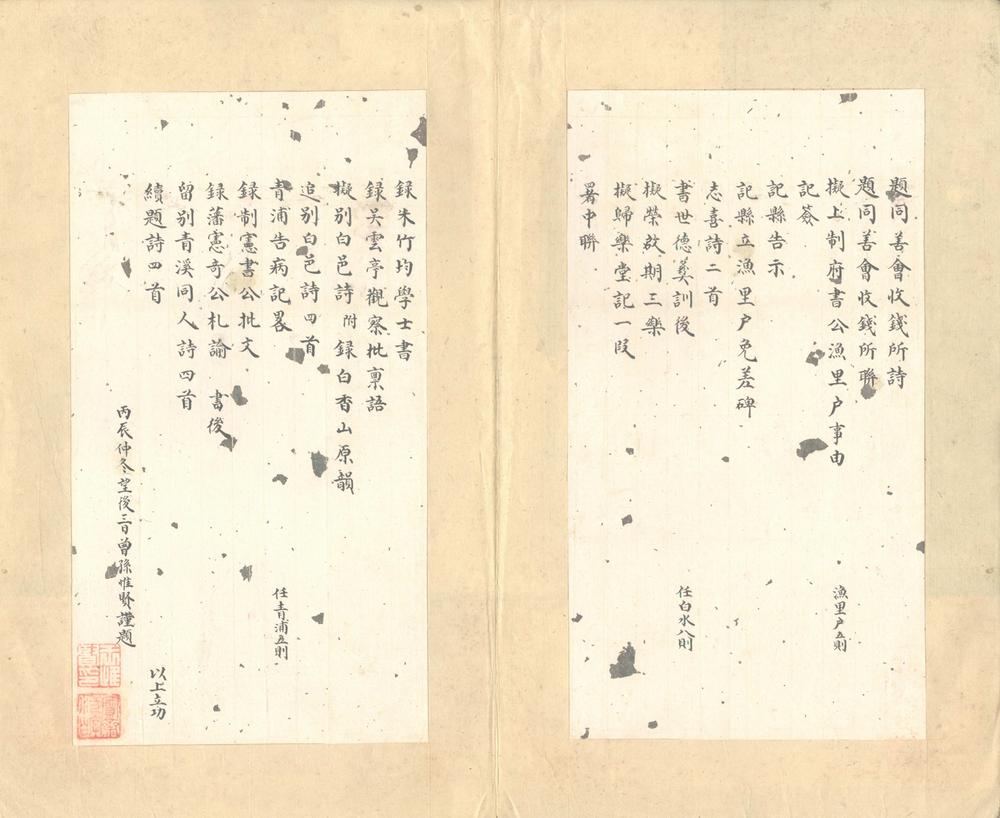 題同善會收錢所詩
題同善會收錢所聯
擬上制府書公漁里户事由
漁里户五則
記簽
記縣告示
記縣立漁里户免差碑
志喜詩二首
書世德彝訓後
任白水八則
擬榮啟期三樂
擬歸樂堂記一段
署中聯
録朱竹均學士書
録吴雲亭觀察批稟語
擬别白邑詩附録白香山原韻
追别白邑詩四首
青浦告病記畧
任青浦五則
録制憲書公批文
録藩憲奇公札諭 書後
留别青溪同人詩四首
續題詩四首
以上立功
丙辰仲冬望後三日曾孫惟賢謹題